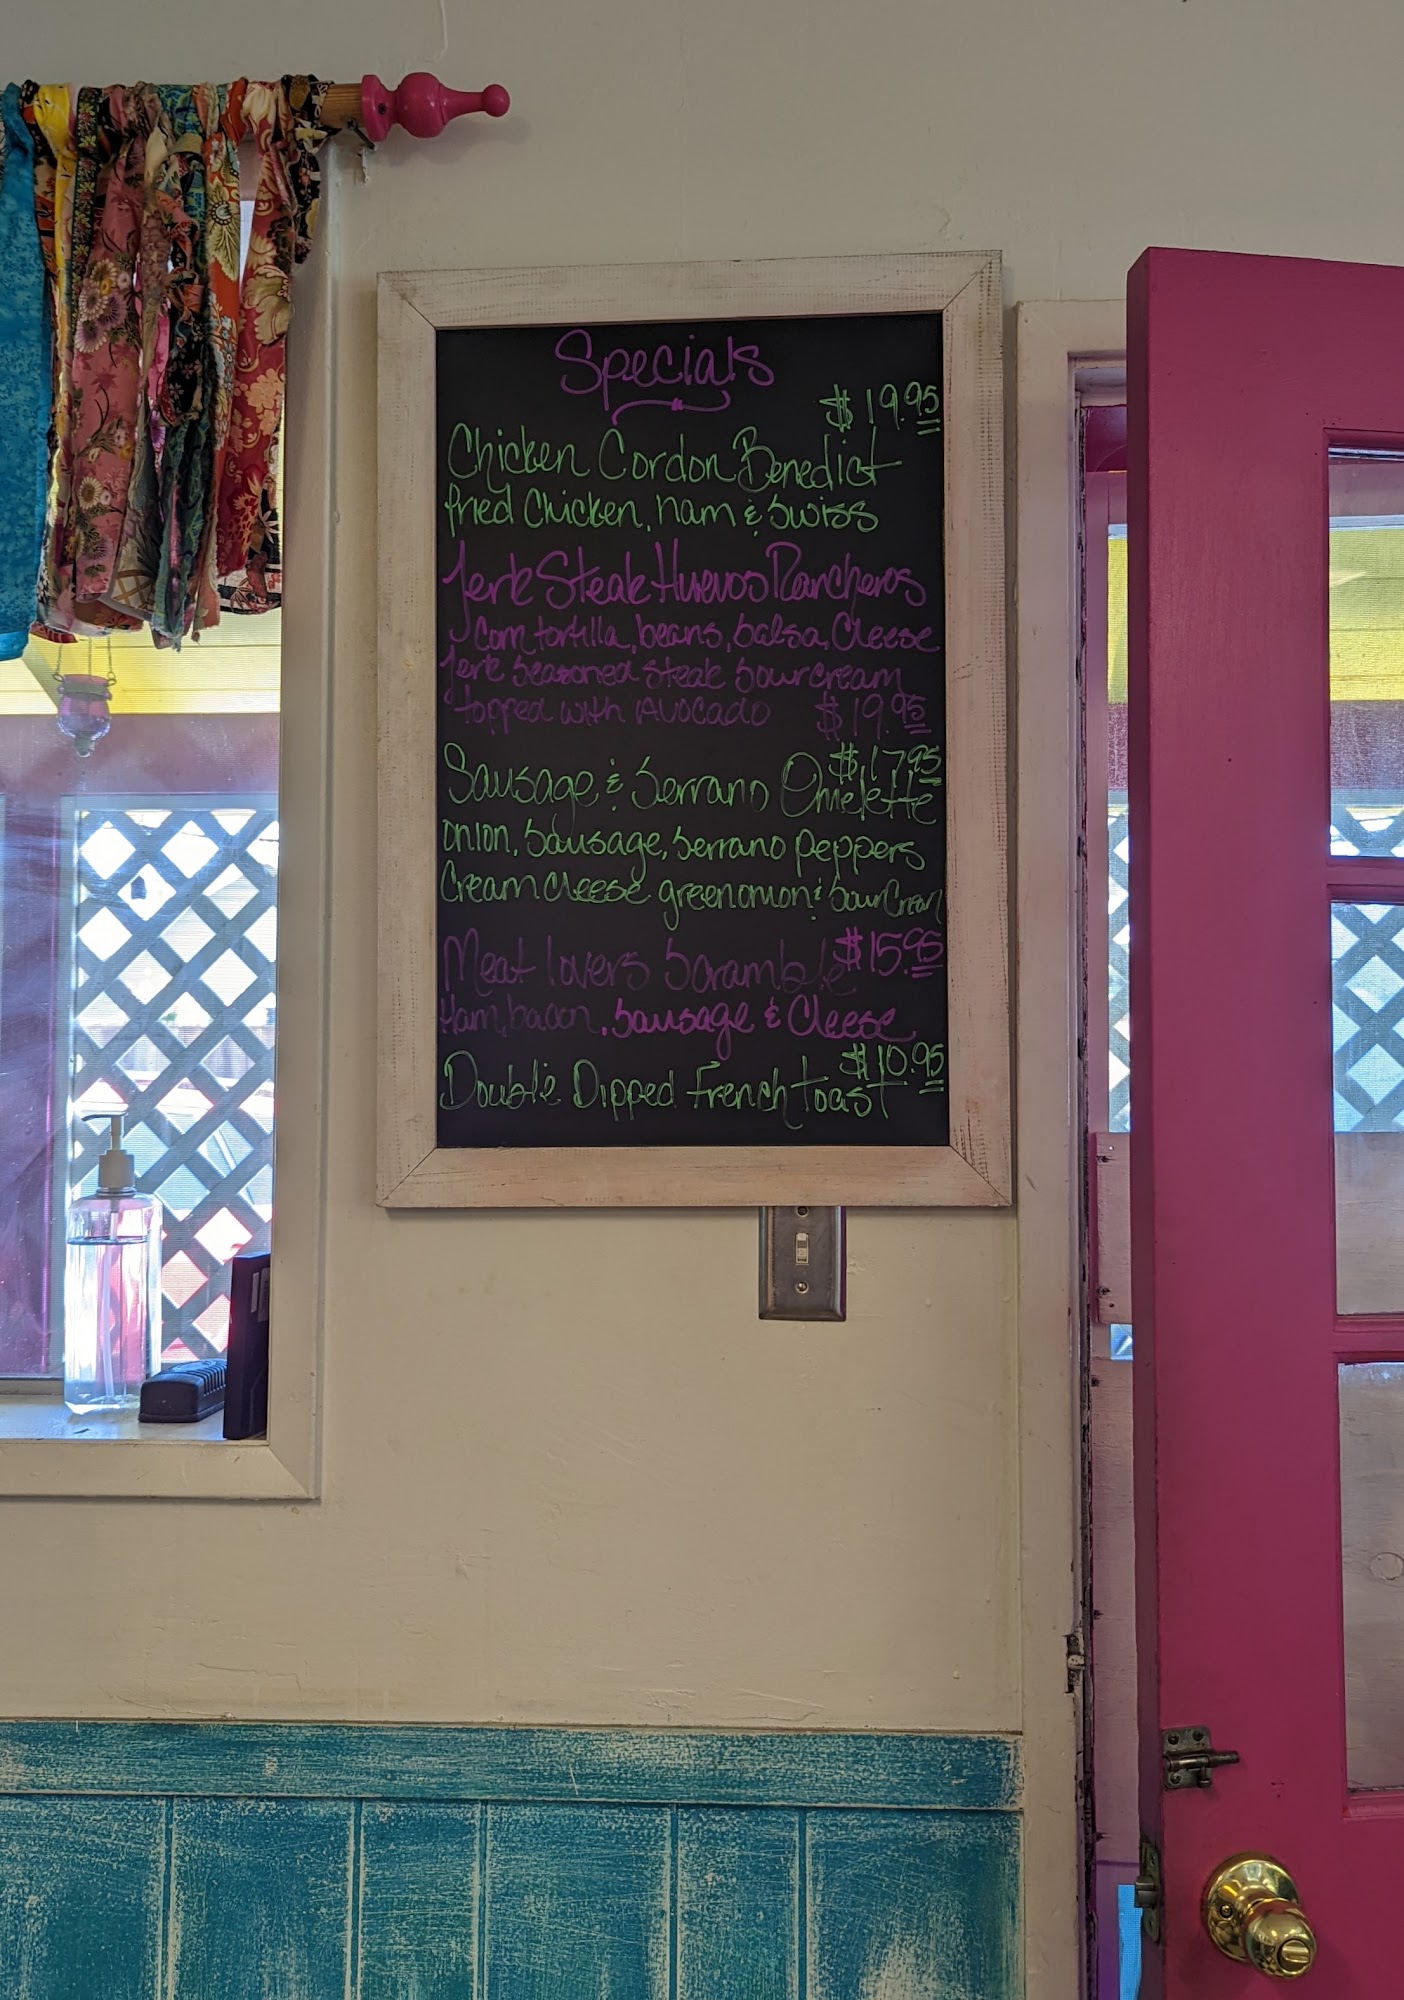 Specials
$19.95
Chicken Cordon Benedict
fried Chicken, ham & Swiss
Jerk Steak Huevos Rancheros
Corn tortilla, beans, Salsa, Cheese
Jerk Seasoned Steak Sour cream
topped with Avocado $19.95
$17.95
Sausage & Serrano Omelette
onion, Sausage, Serrano peppers
Cream Cheese green onion & Sour Cream
Meat lovers Scramble $15.95
Ham, bacon, Sausage & Cheese
$10.95
Double Dipped French toast